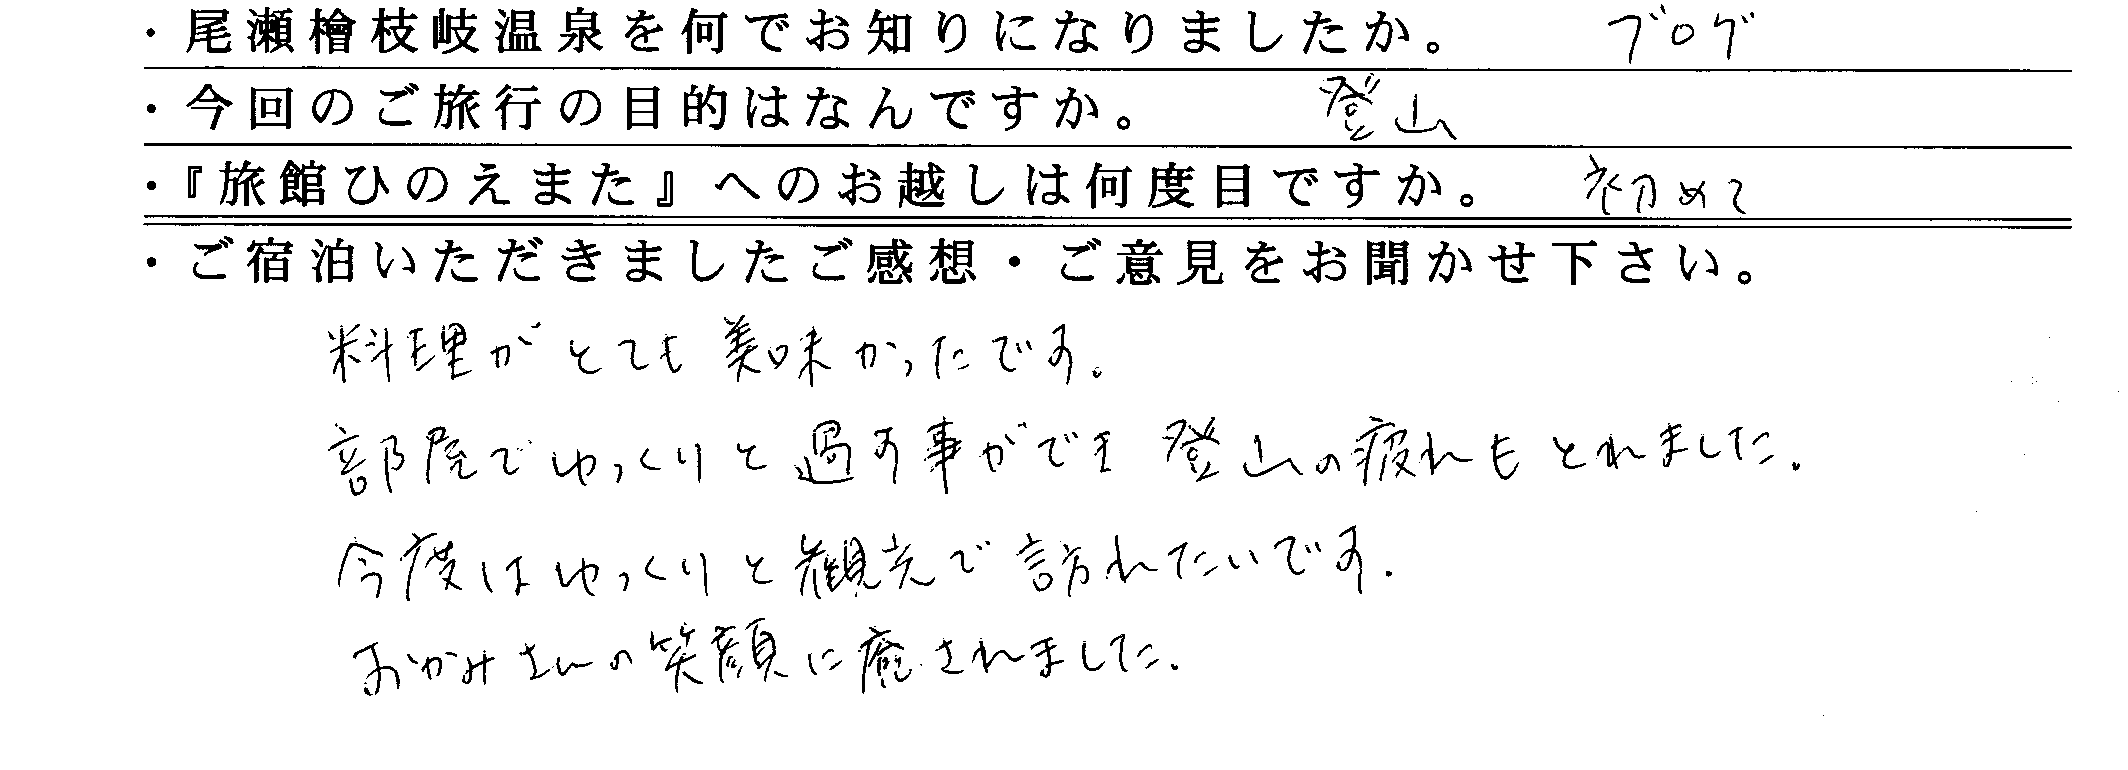 ・尾瀬檜枝岐温泉を何でお知りになりましたか。 ブログ
・今回のご旅行の目的はなんですか。 登山
・『旅館ひのえまた』へのお越しは何度目ですか。 初めて
・ご宿泊いただきましたご感想・ご意見をお聞かせ下さい。
料理がとても美味かったです。
部屋でゆっくりと過す事ができ 登山の疲れもとれました。
今度はゆっくりと観光で訪れたいです。
おかみさんの笑顔に癒されました。